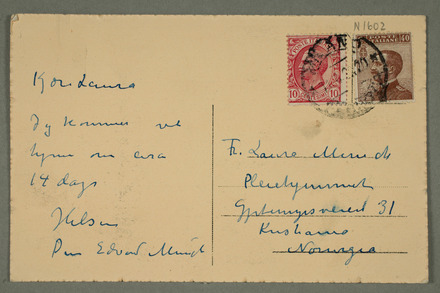 N 1602
Kjære Laura
Jeg kommer vel
hjem om circa
14 dage
Hilsen
Din Edvard Munch
40
10 10
Fr. Laura Munch
Pleiehjemmet
31
Kristiania
Norvegia